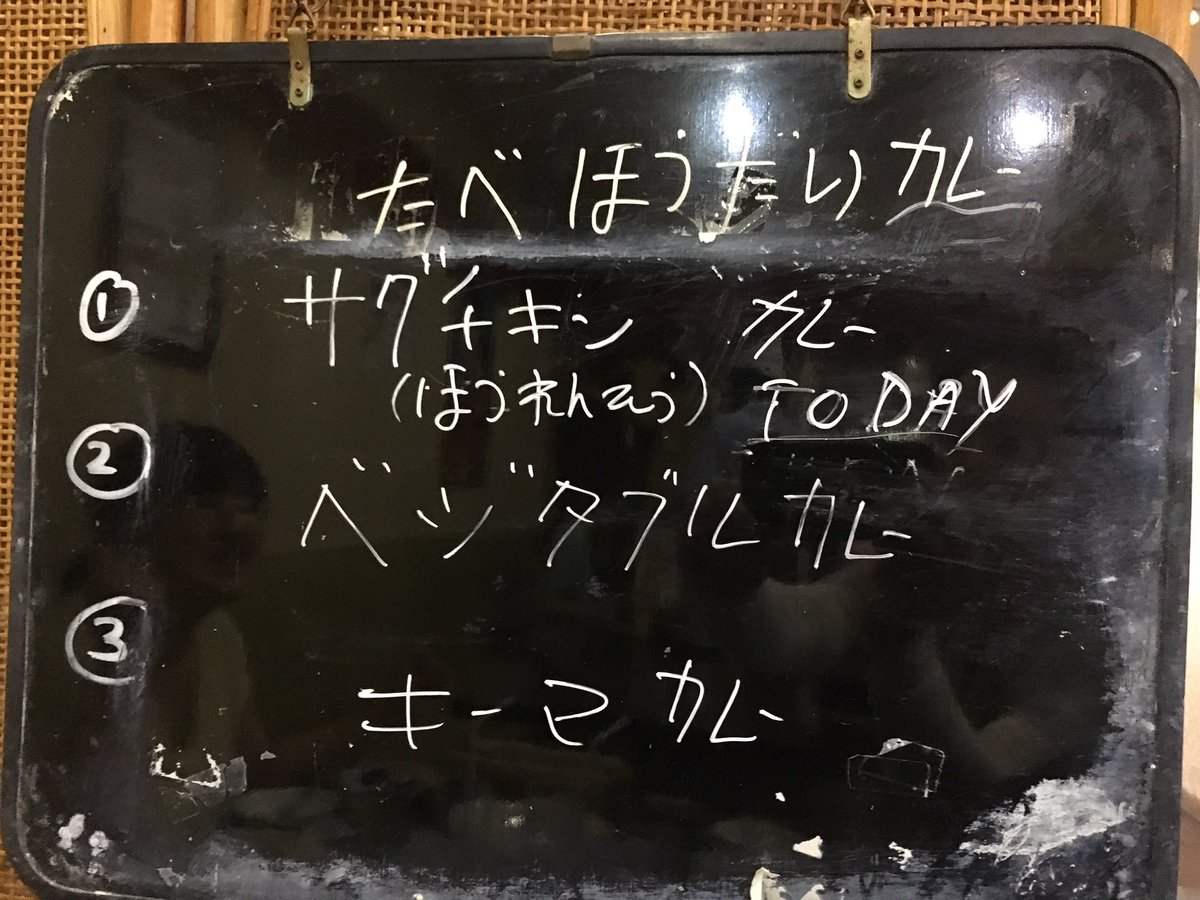 たべほうだいカレー
① サグチキン カレー
(ほうれんそう) TODAY
② ベジタブルカレー
③ キーマカレー